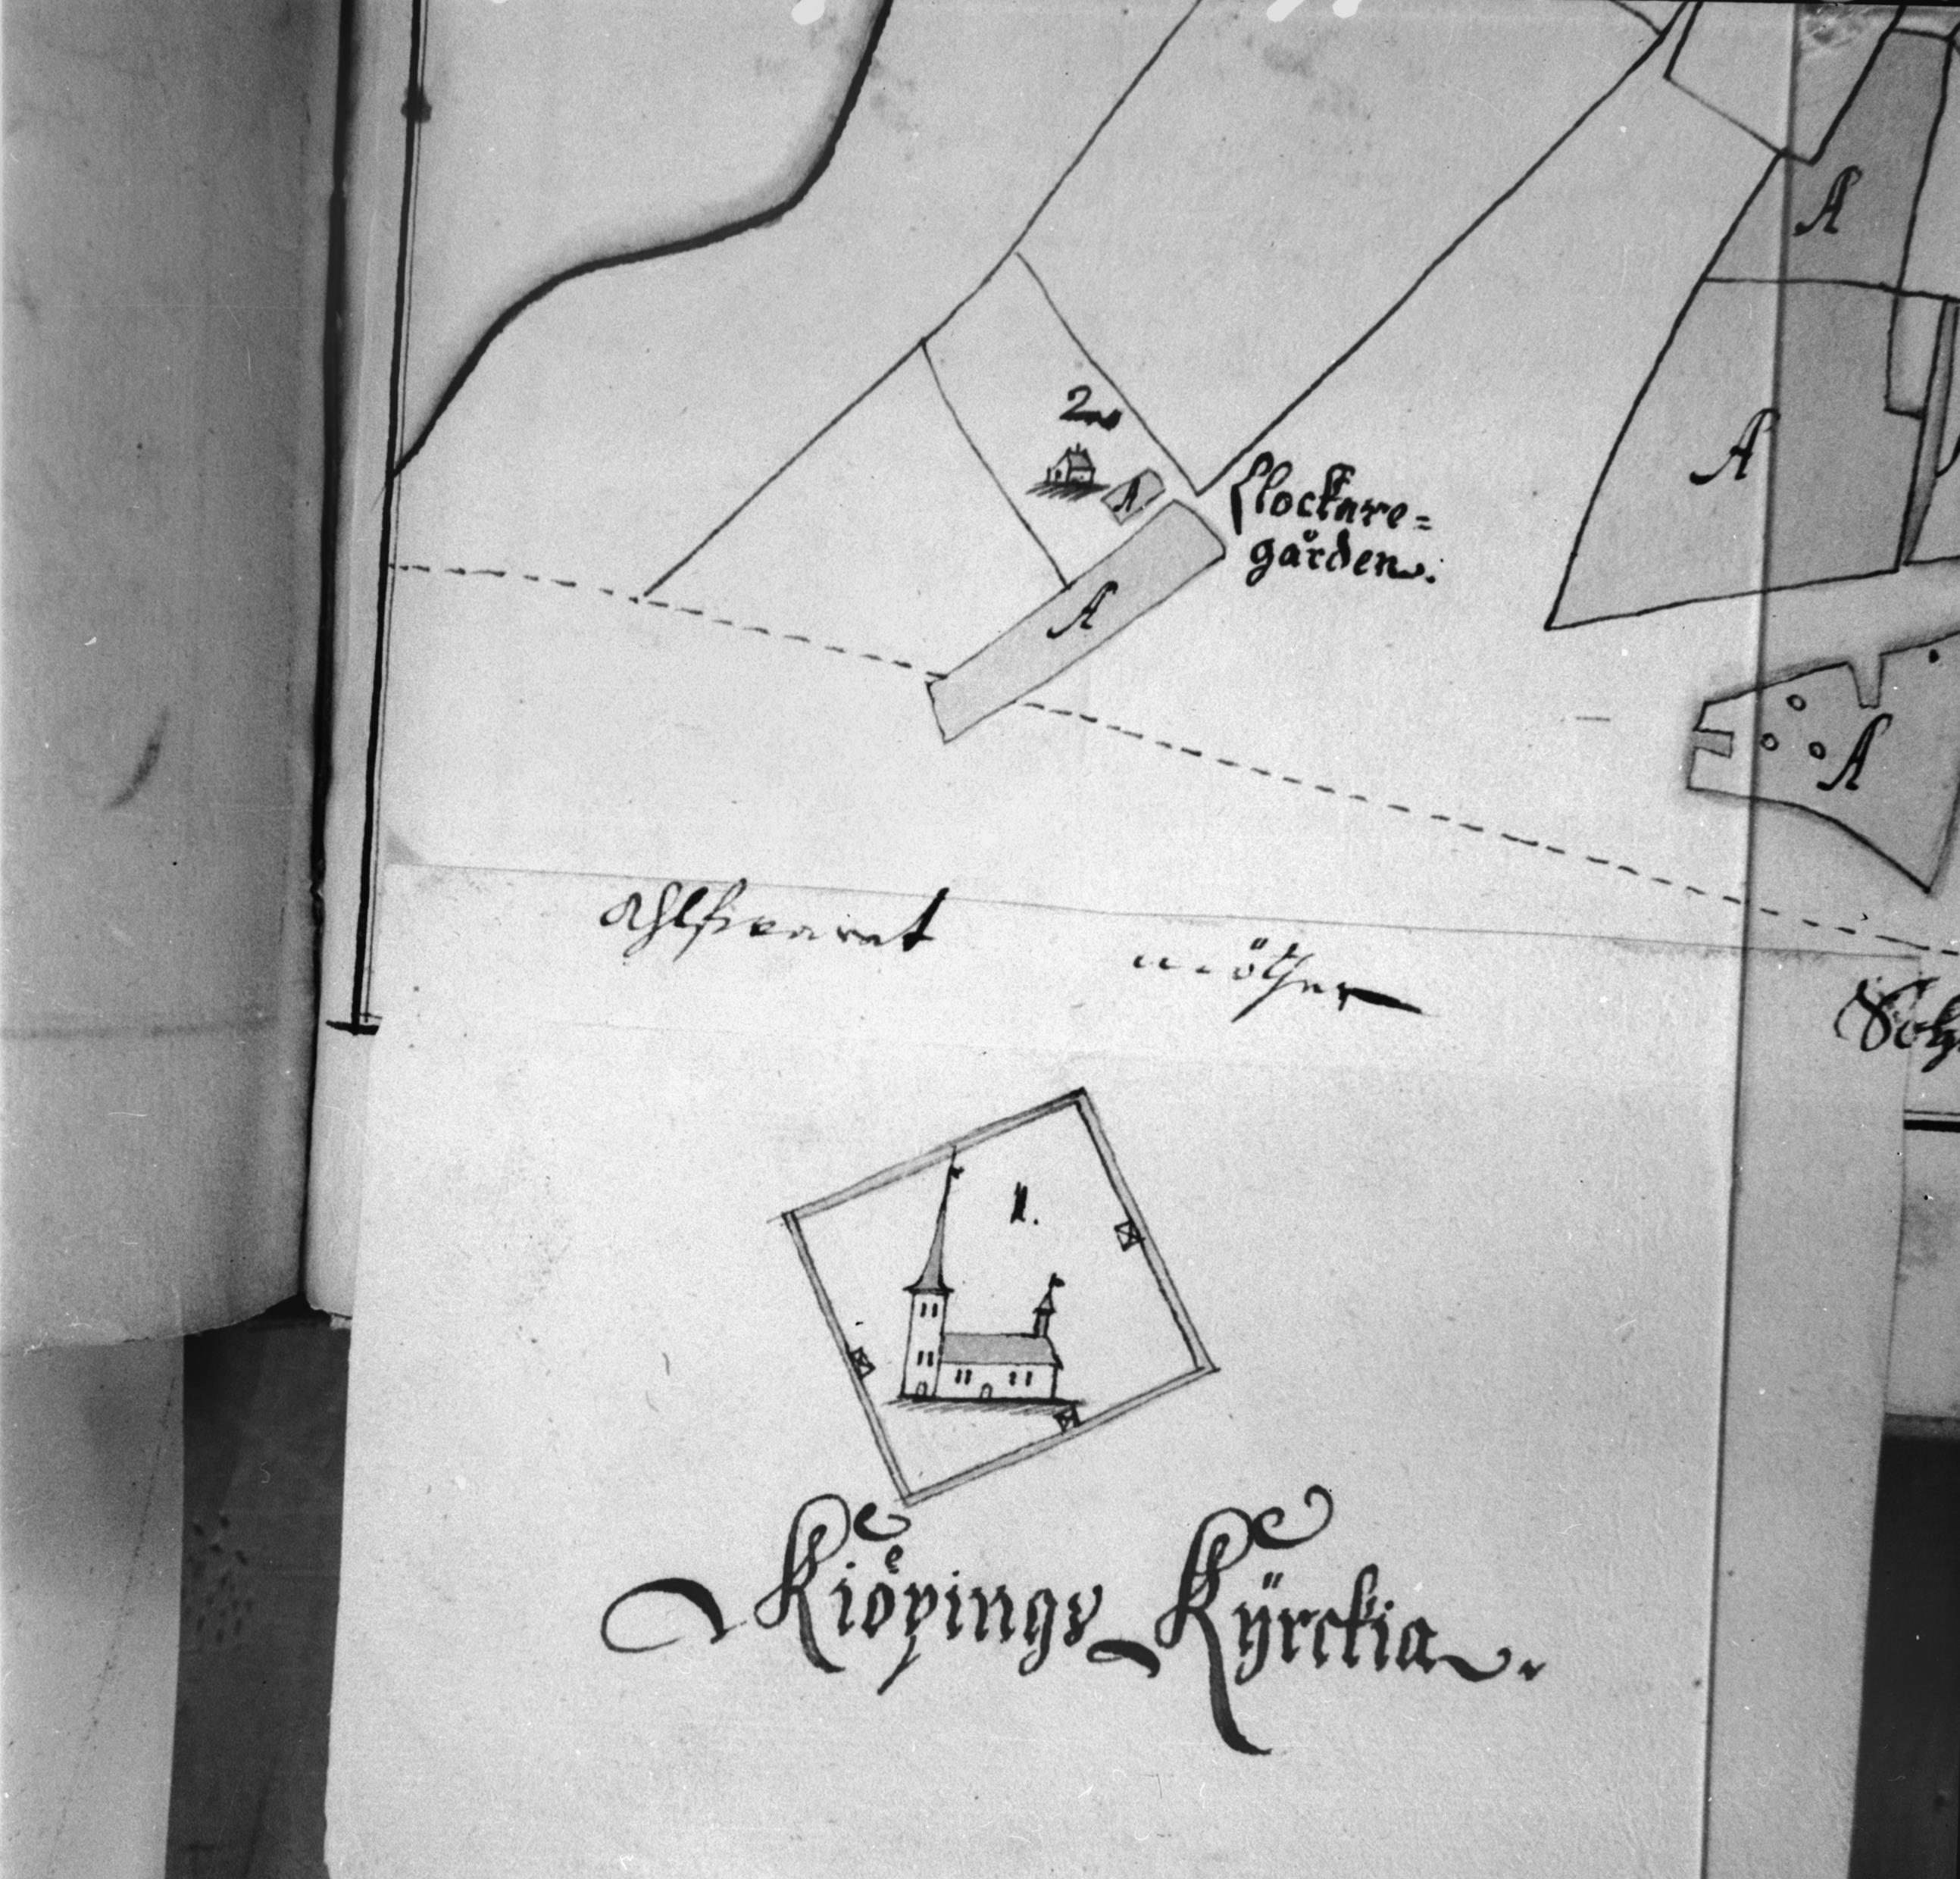 A
A
2
A
Clockare=
gården.
A
A
1.
Kiöpings Kÿrckia.